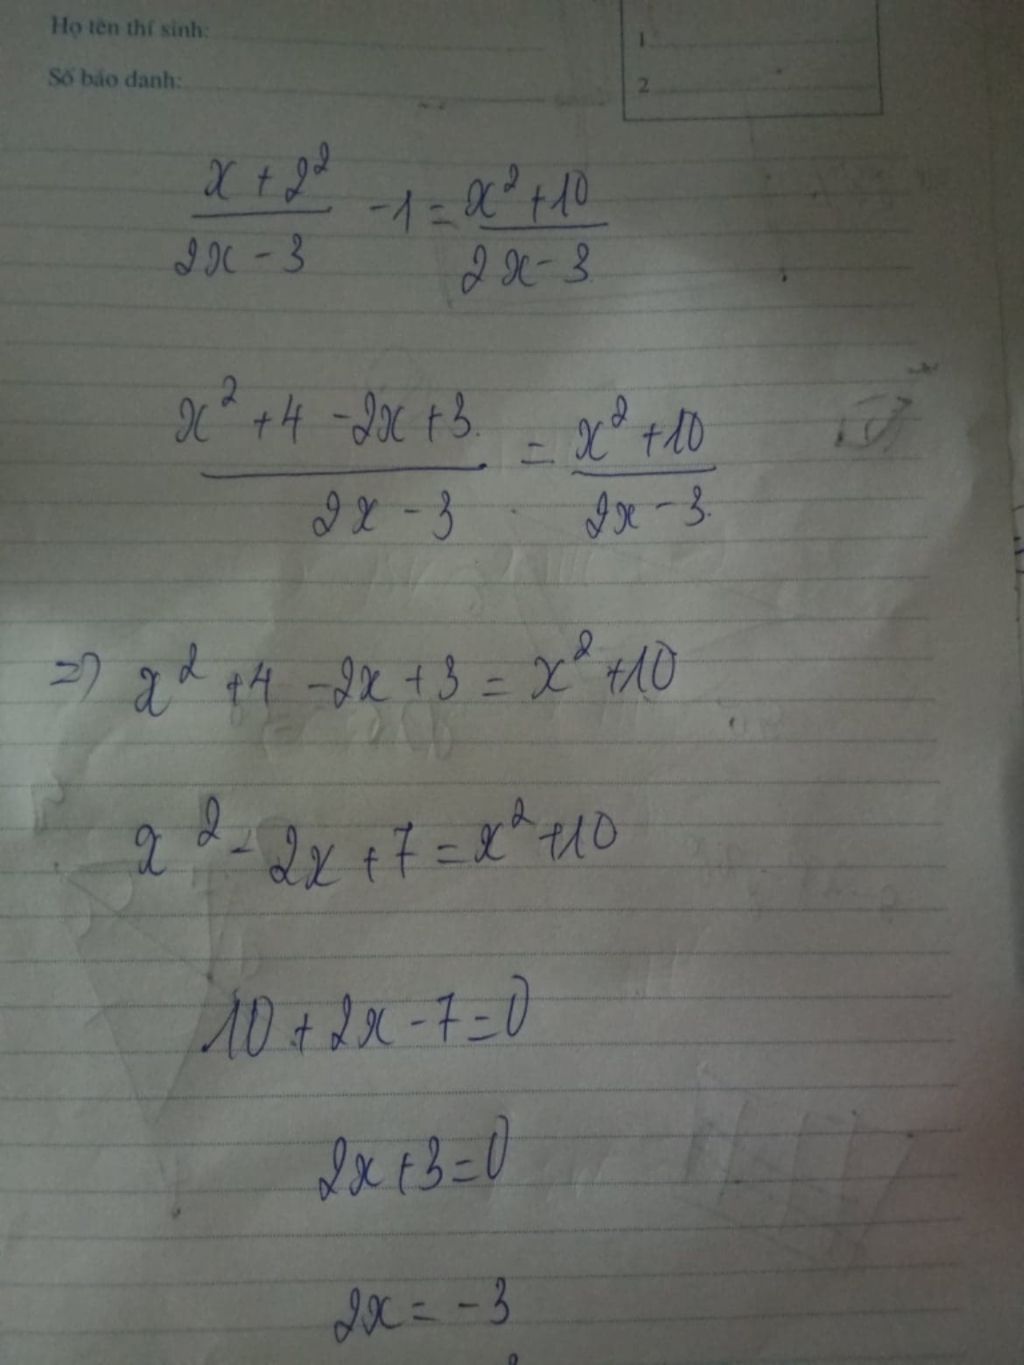 Họ tên thí sinh:
Số báo danh:
1
2
x + 2² / 2x - 3 - 1 = x² + 10 / 2x - 3
x² + 4 - 2x + 3 / 2x - 3 = x² + 10 / 2x - 3
=> x² + 4 - 2x + 3 = x² + 10
x² - 2x + 7 = x² + 10
10 + 2x - 7 = 0
2x + 3 = 0
2x = -3